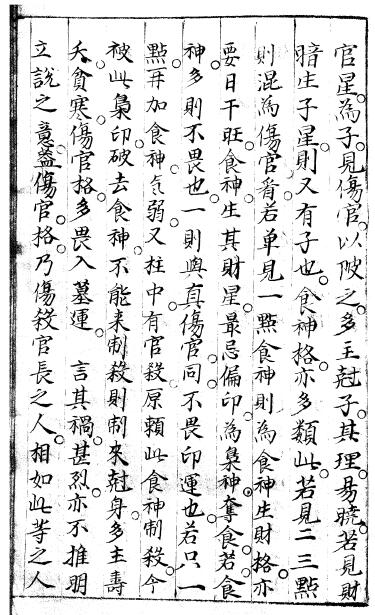 官星為子見傷官以陂之多王尅子其理昜曉若見財
暗生子星則又有子也食神格亦多類此若見二三點
則混為傷官看若单見一點食神則為食神生財格亦
要日干旺食神生其財星最忌偏印為梟神奪食若食
神多則不畏也一則與真傷官同不畏印運也若只一
點再加食神氣弱又柱中有官殺原頼此食神制殺今
被此梟印破去食神不能来制殺則制來尅身多主壽
夭貧寒傷官格多畏入墓運 言其禍甚烈亦不推明
立說之意葢傷官格乃傷殺官長之人相如此等之人